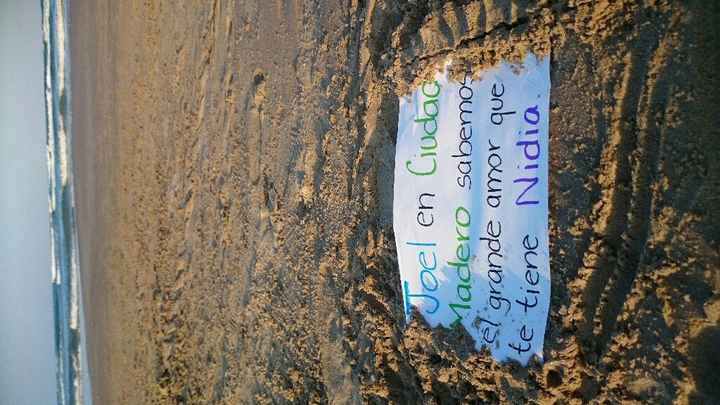 Joel en Ciudad
Madero sabemos
el grande amor que
te tiene Nidia.